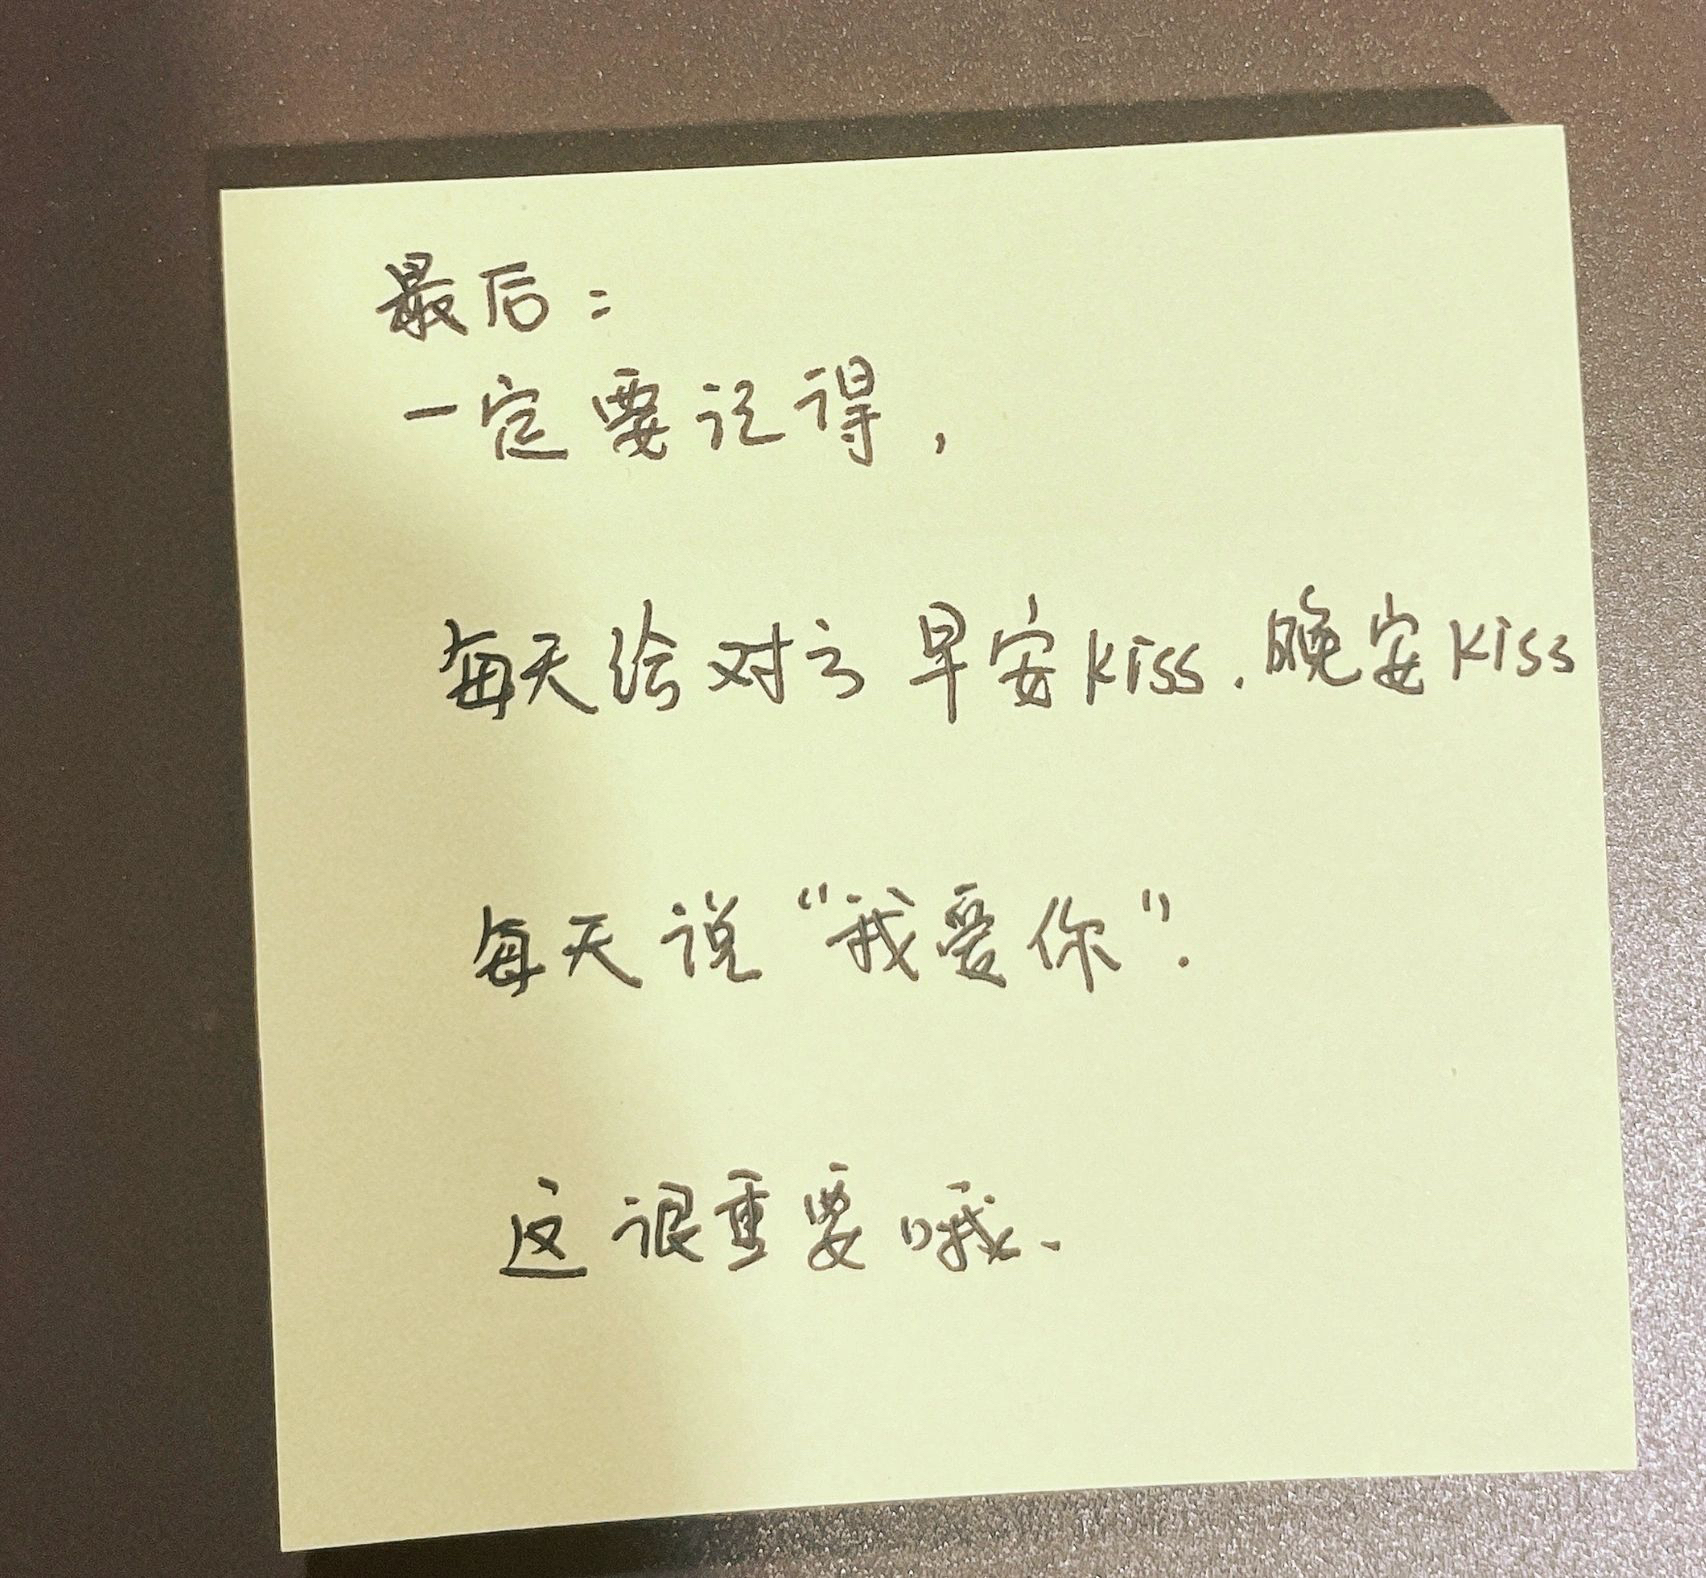 最后：
一定要记得，
每天给对方早安kiss.晚安kiss
每天说“我爱你”.
这很重要哦.